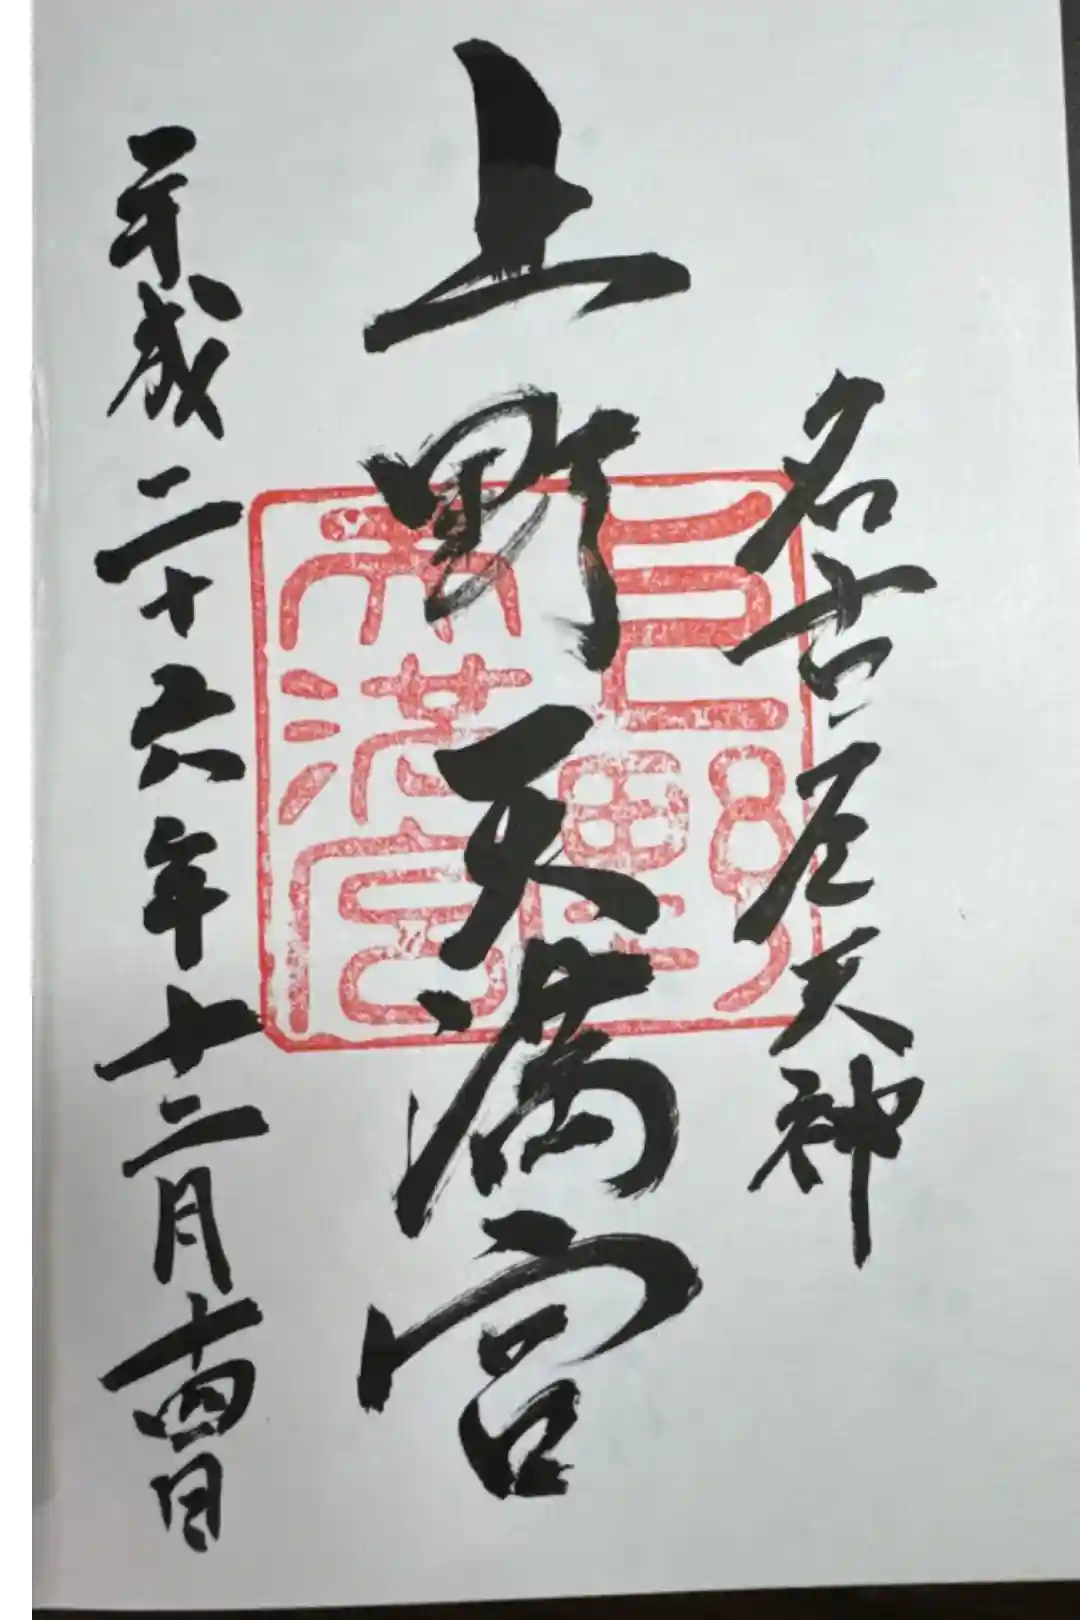 名古屋天神
上野天満宮
平成二十六年十二月十四日
上野
天満宮